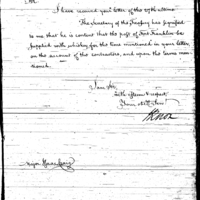 Sir.
I have received your letter of the 17th ultimo
The Secretary of the Treasury has signified
to me that he is content that the post of Fort Franklin be
supplied with whiskey for the time mentioned in your letter
on the account of the contractors, and upon the terms men-
tioned.
I am Sir,
with esteem & respect
Your obt. Servt
HKnox
Major Isaac Craig